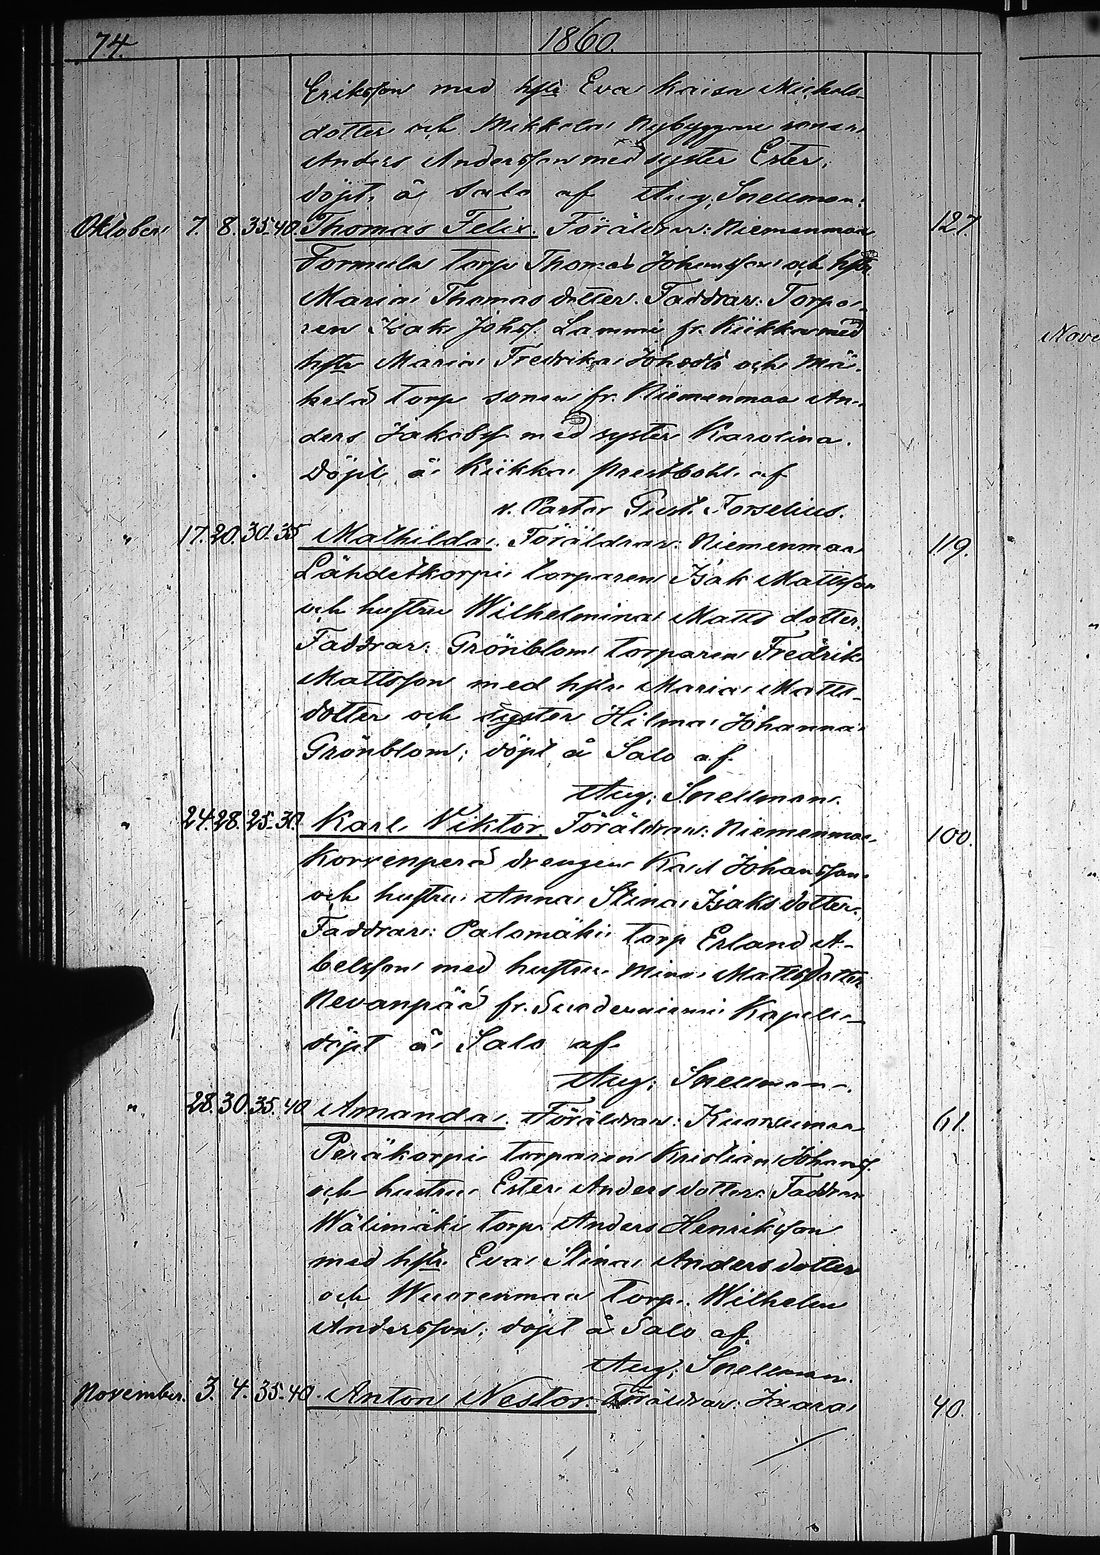 74. 1860.
Eriksson med hstr Eva Kaisa Michels-
dotter och Mikkola Nybyggare sonen
Anders Andersson med syster Ester,
döpt å Salo af Aug. Snellman.
Oktober 7. 8. 35-40. Thomas Felix. Föräldrar: Niemenmaa 127
Formula Torp. Thomas Johansson och hstr
Maria Thomas dotter. Faddrar: Torpa-
ren Isak Johss. Lammi fr. Kiikka med
hstr Maria Fredrika Johsdr och Mä-
kelä torp sonen fr. Niemenmaa An-
ders Jakobss. med syster Karolina.
Döpt å Kiikka Prestbohl af
v. Pastor Gust. Forselius.
" 17. 20. 30. 35 Mathilda. Föräldrar: Niemenmaa 119.
Lähdetkorpi torparen Isak Mattsson
och hustru Wilhelmina Matts dotter.
Faddrar: Grönblom torparen Fredrik
Mattsson med hstr Maria Matts-
dotter och syster Hilma Johanna
Grönblom; döpt å Salo af
Aug. Snellman.
" 24. 28. 25-30. Karl Viktor. Föräldrar: Niemenmaa 100.
Korvenperä drengen Karl Johansson
och hustru Anna Stina Isaks dotter.
Faddrar: Palomäki Torp Erland A-
belsson med hustru Mina Mattsdotter
Nevanpää fr. Suoderniemi Kapell
döpt å Salo af
Aug. Snellman.
" 28. 30. 35. 40 Amanda. Föräldrar: 61.
Peräkorpi torparen Kristian Johanss.
och hustru Ester Anders dotter. Faddrar
Wälimäki torp. Anders Henriksson
med hstr. Eva Stina Anders dotter
och Wuorenmaa Torp. Wilhelm
Andersson; döpt å Salo af
Aug. Snellman.
November. 3. 4. 35-40 Anton Nestor. Föräldrar: 40.
Nove